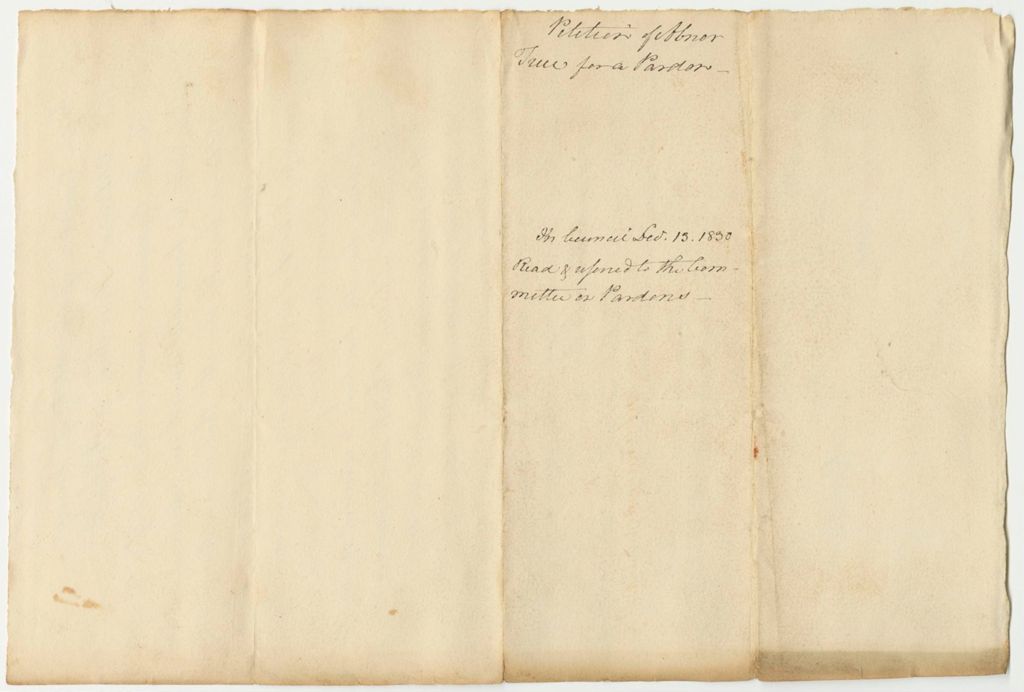 Petition of Abner
True for a Pardon—
In Council Dec. 13. 1830
Read & referred to the Com-
mittee on Pardons—